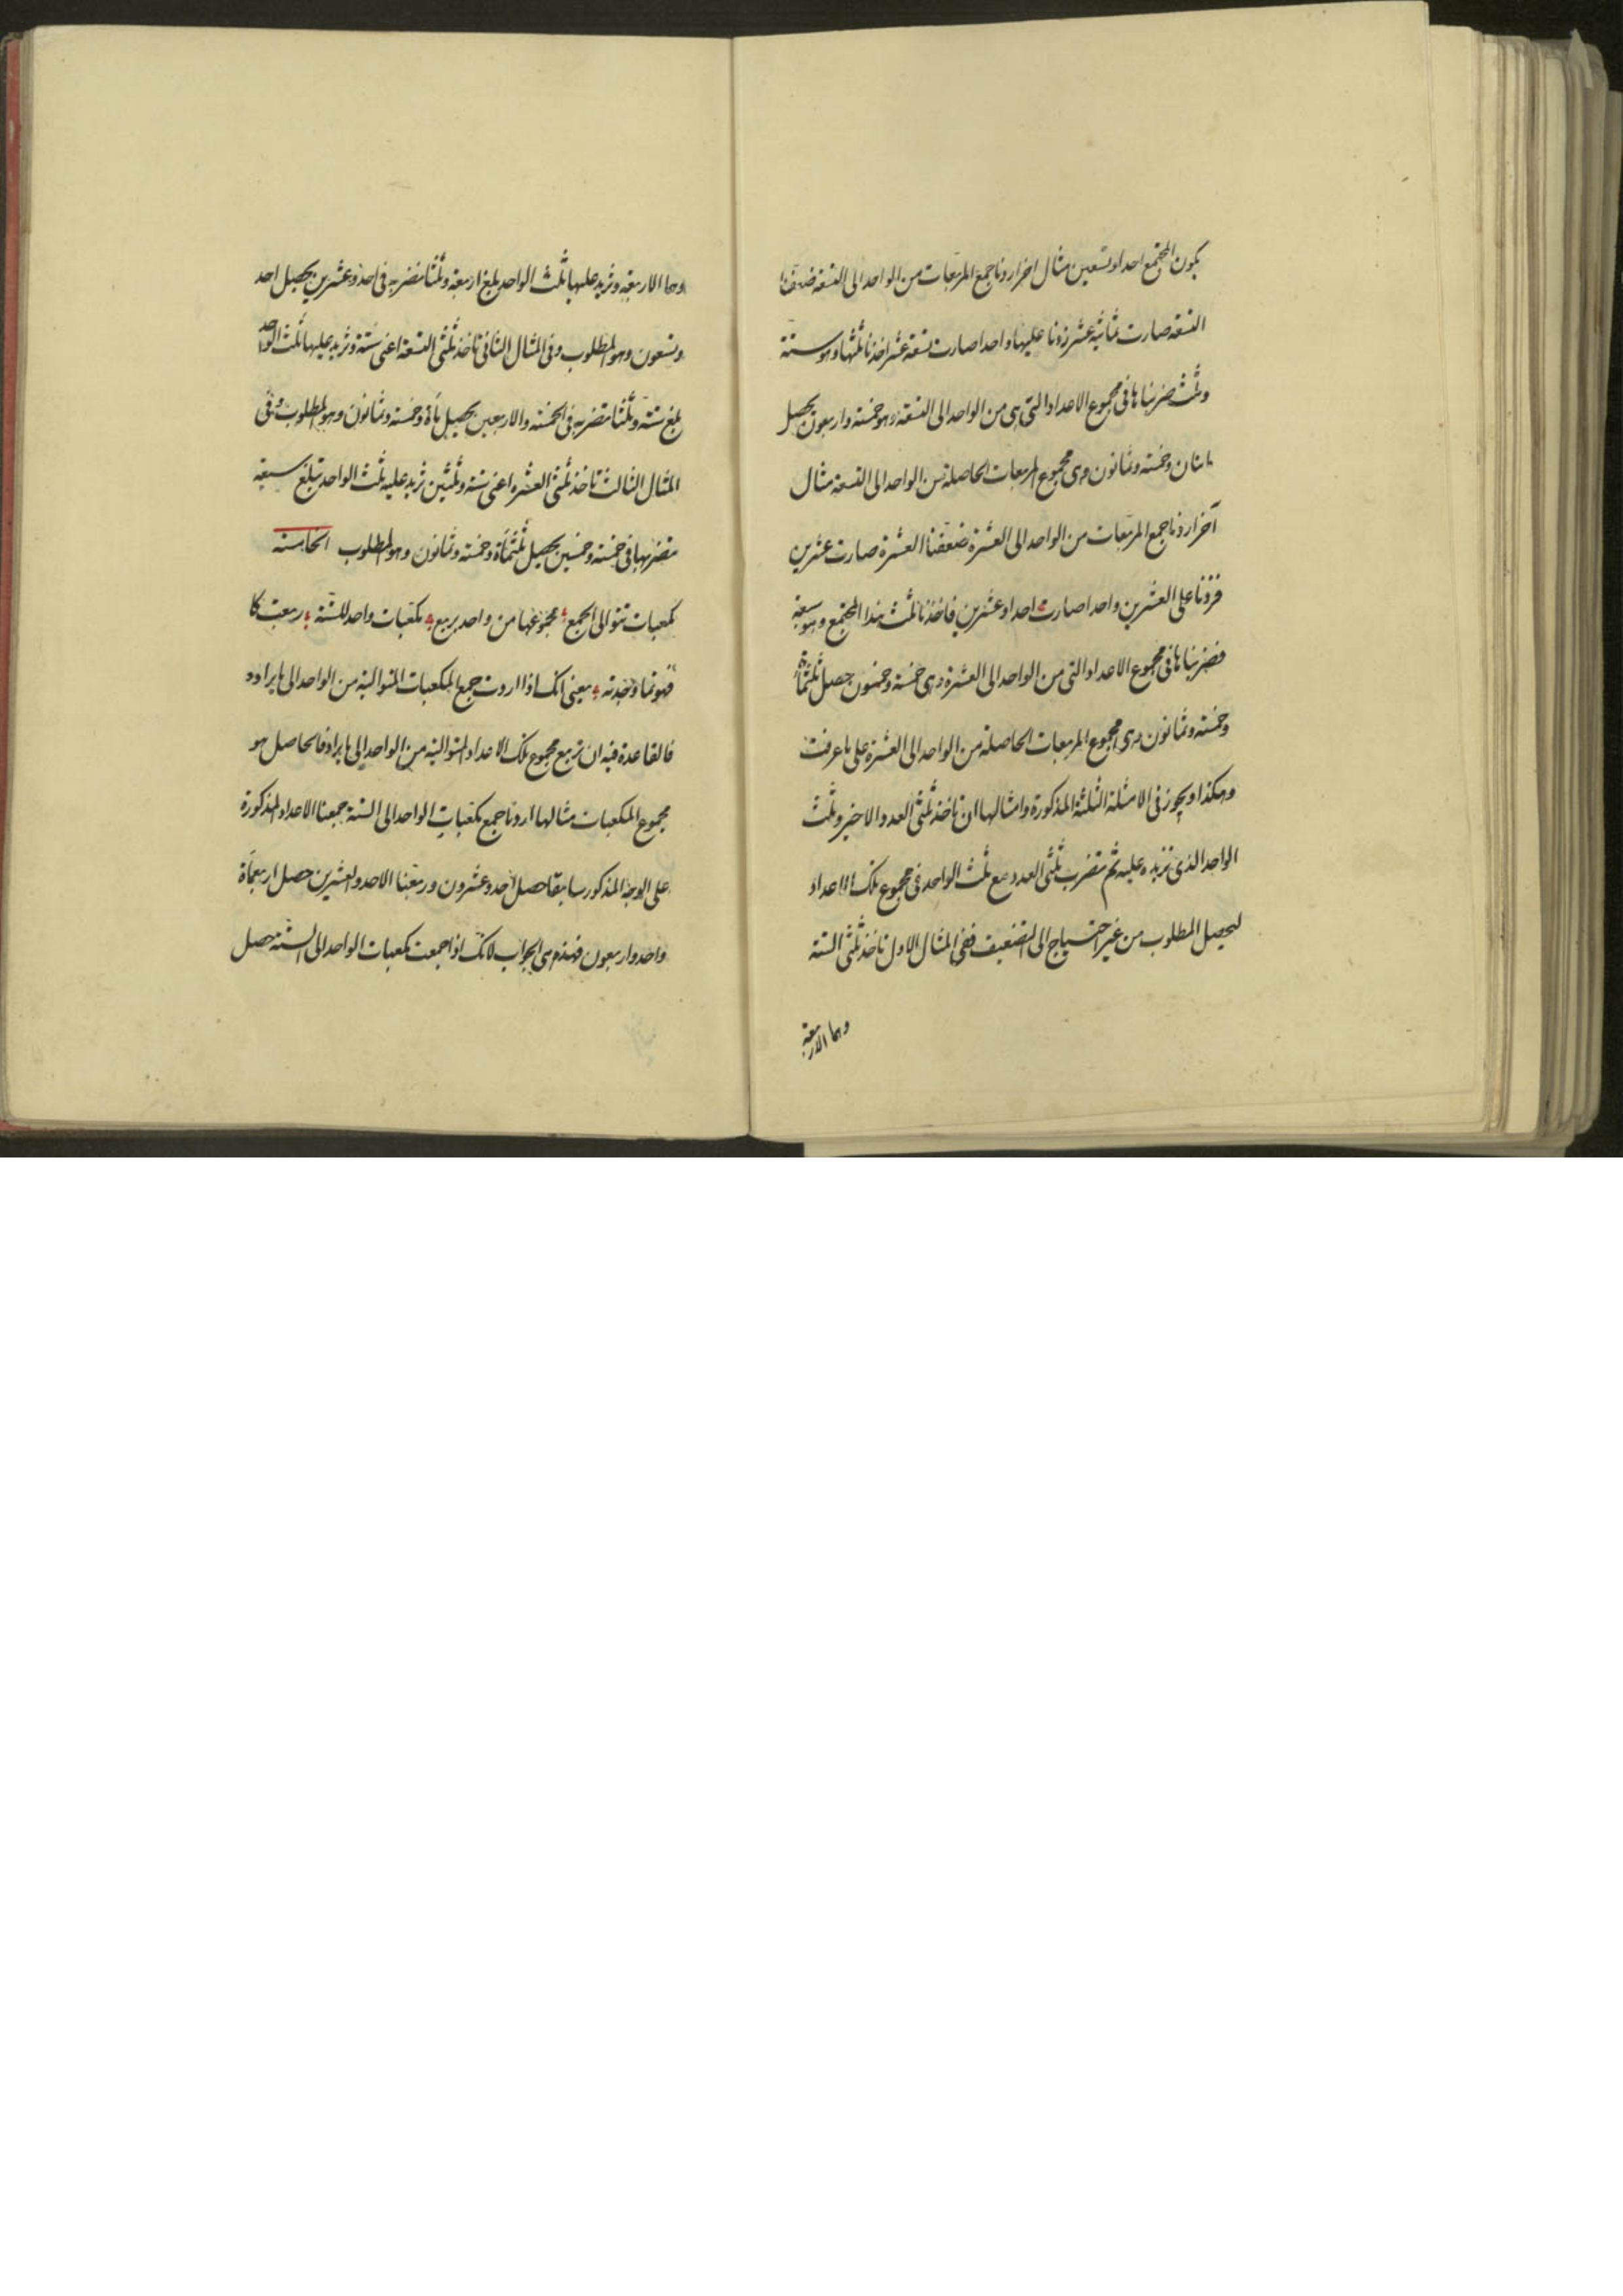 يكون المجتمع احدا وتسعين مثال اخر اردنا جمع المربعات من الواحد الى التسعة ضعفنا
التسعة صارت ثمانية عشر زدنا عليها واحدا صارت تسعة عشر اخذنا ثلثها وهو ستة
وثلث ضربناها في مجموع الاعداد التي هي من الواحد الى التسعة وهو خمسة واربعون يحصل
مايتان وخمسة وثمانون وهي مجموع المربعات الحاصلة من الواحد الى التسعة مثال
آخر اردنا جمع المربعات من الواحد الى العشرة ضعفنا العشرة صارت عشرين
فزدنا على العشرين واحدا صارت احدا وعشرين فاخذنا ثلث هذا المجتمع وهو سبعة
فضربناها في مجموع الاعداد التي من الواحد الى العشرة وهي خمسة وخمسون حصل ثلثمائة
وخمسة وثمانون وهي مجموع المربعات الحاصلة من الواحد الى العشرة على ما عرفت
وهكذا ويجوز في الامثلة الثلثة المذكورة وامثالها ان تاخذ ثلثي العدد الاخير وثلث
الواحد الذي تزيده عليه ثم تضرب ثلثي العدد مع ثلث الواحد في مجموع تلك الاعداد
ليحصل المطلوب من غير احتياج الى التضعيف ففي المثال الاول تاخذ ثلثي الستة
وهما الاربعة
وهما الاربعة وتزيد عليها ثلث الواحد يبلغ اربعة وثلثا تضربه في احد وعشرين يحصل احد
وتسعون وهو المطلوب وفي المثال الثاني تاخذ ثلثي التسعة اعني ستة وتزيد عليها ثلث الواحد
يبلغ ستة وثلثا تضربه في الخمسة والاربعين يحصل مأة وخمسة وثمانون وهو المطلوب وفي
المثال الثالث تاخذ ثلثي العشرة اعني ستة وثلثين تزيد عليه ثلث الواحد تبلغ سبعة
تضربها في خمسة وخمسين يحصل ثلثمأة وخمسة وثمانون وهو المطلوب الخامسة
مكعبات تتوالى اجمع مجموعها من واحد بربع مكعبات واحد للستة ربعت كا
فهو ما وجدته يعني انك اذا اردت جمع المكعبات المتوالية من الواحد الى ما يراد
فالقاعدة فيه ان تربع مجموع تلك الاعداد المتوالية من الواحد الى ما يراد فالحاصل هو
مجموع المكعبات مثالها اردنا جمع مكعبات الواحد الى الستة جمعنا الاعداد المذكورة
على الوجه المذكور سابقا حصل احد وعشرون وربعنا الاحد والعشرين حصل اربعمأة
واحد واربعون فهذه هي الجواب لانك اذا جمعت مكعبات الواحد الى الستة حصل